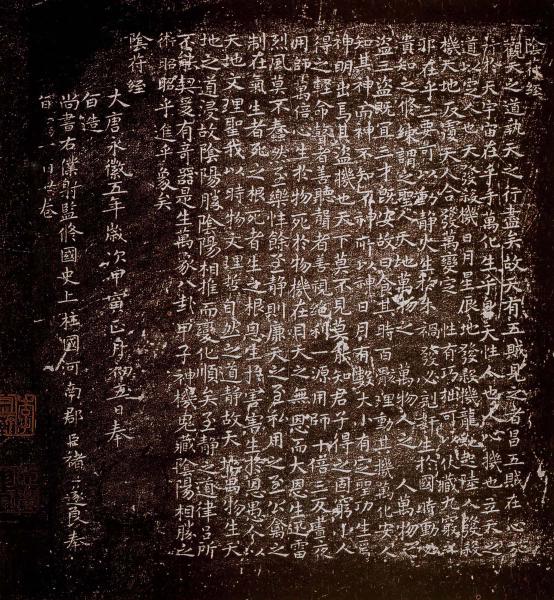 陰符經
觀天之道執天之行盡矣故天有五賊見之者昌五賊在心施
行於天宇宙在乎手萬化生乎身天性人也人心機也立天之
道以定人也天發殺機日月星辰地發殺機龍虵起陸人發殺
機天地反覆天人合發萬變定基性有巧拙可以伏藏九竅之
邪在乎三要可以動靜火生於木禍發必剋姧生於國時動必
潰知之修練謂之聖人天地萬物之盜萬物人之盜人萬物之
盜三盜既宜三才既安故曰食其時百骸理動其機萬化安人
知其神而神不知不神所以神日月有數大小有定聖功生焉
神明出焉其盜機也天下莫不見莫能知君子得之固窮小人
得之輕命瞽者善聽聾者善視絕利一源用師十倍三反晝夜
用師萬倍心生於物死於物機在目天之無恩而大恩生迅雷
烈風莫不蠢然至樂性餘至靜則廉天之至私用之至公禽之
制在氣生者死之根死者生之根恩生於害害生於恩愚人以
天地文理聖我以時物文理哲自然之道靜故天地萬物生天
地之道浸故陰陽勝陰陽相推而變化順矣至靜之道律呂所
不能契爰有奇器是生萬象八卦甲子神機鬼藏陰陽相勝之
術昭昭乎進乎象矣
陰符經
大唐永徽五年歲次甲寅正月初五日奉
旨造
尚書右僕射監修國史上柱國河南郡臣褚遂良奉
旨 一百 卷